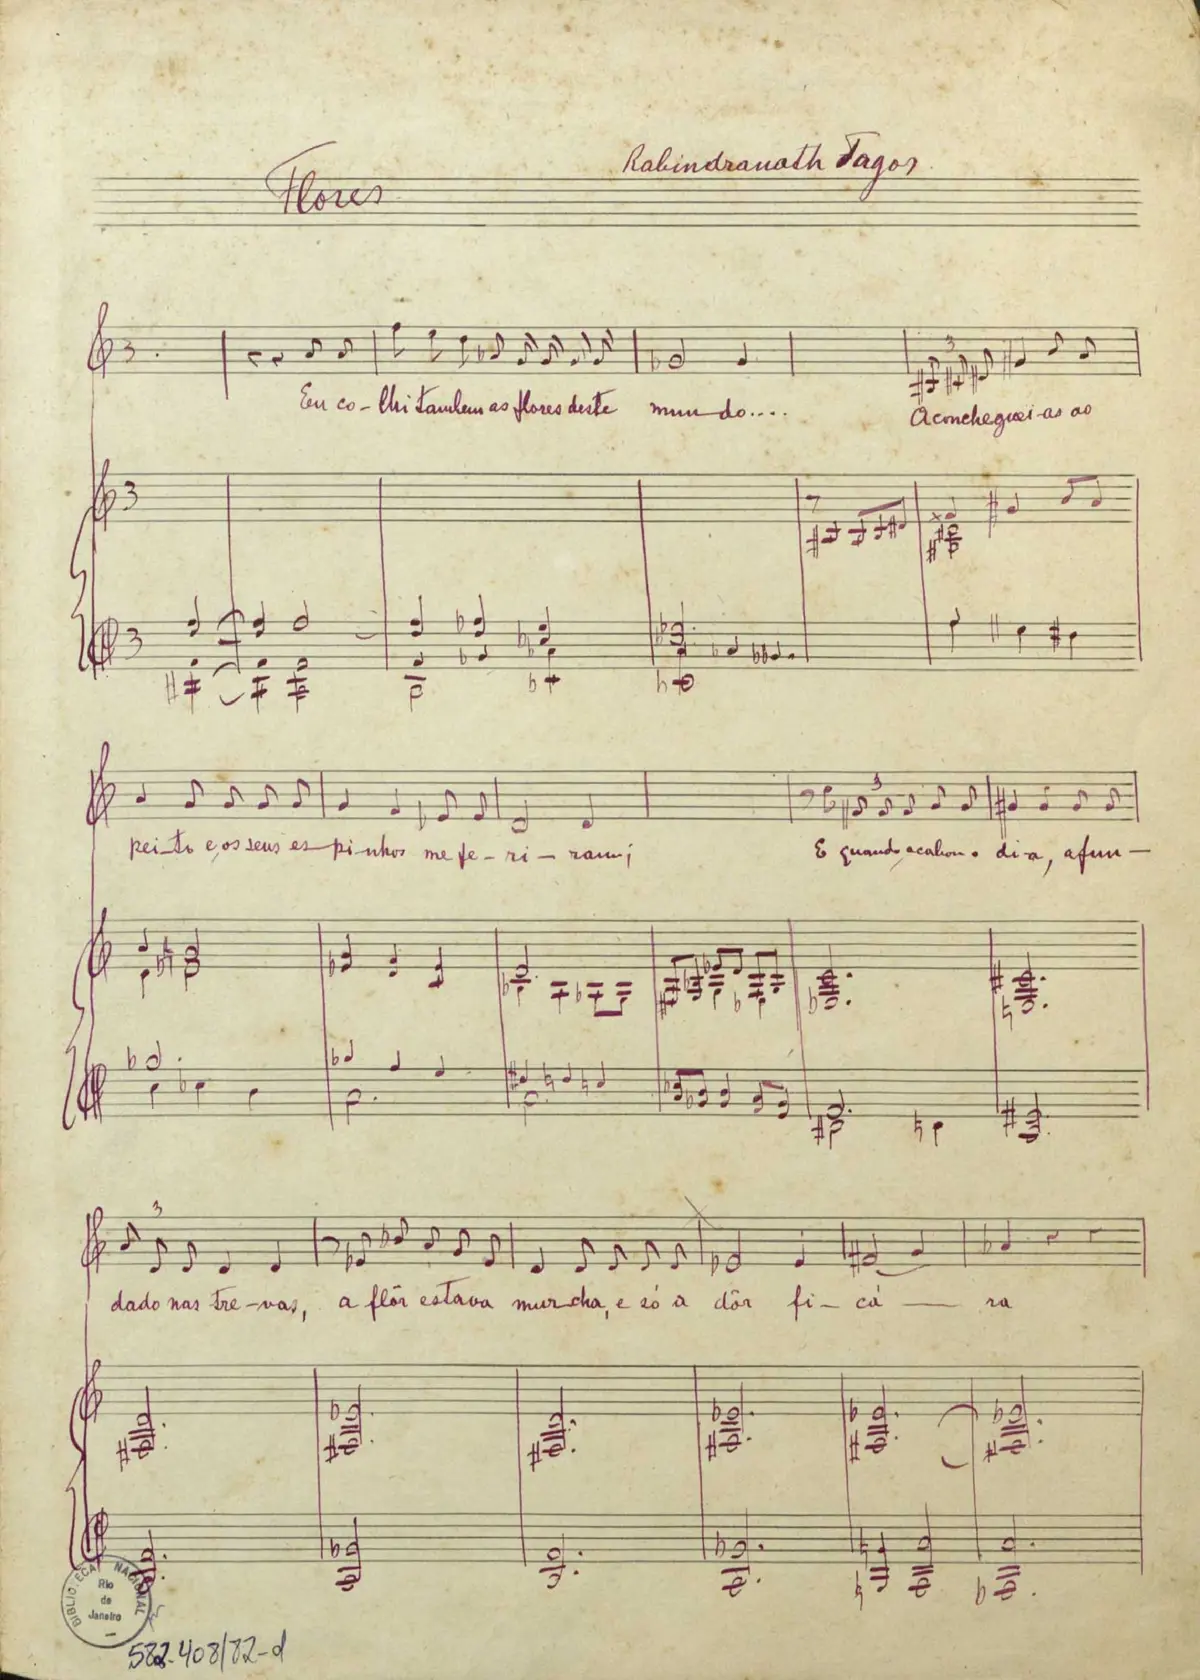 Flores
Rabindranath Tagor
3
3
Eu co-lhi tambem as flores deste mun-do.... Aconcheguei-as ao
3
3
3
pei-to e os seus es-pi-nhos me fe-ri-ram; E quando acabou o di-a, afun-
3
dado nas tre-vas, a flôr estava mur-cha, e só a dôr fi-cá-ra
BIBLIOTECA NACIONAL
Rio
de
Janeiro
582.408/82-d